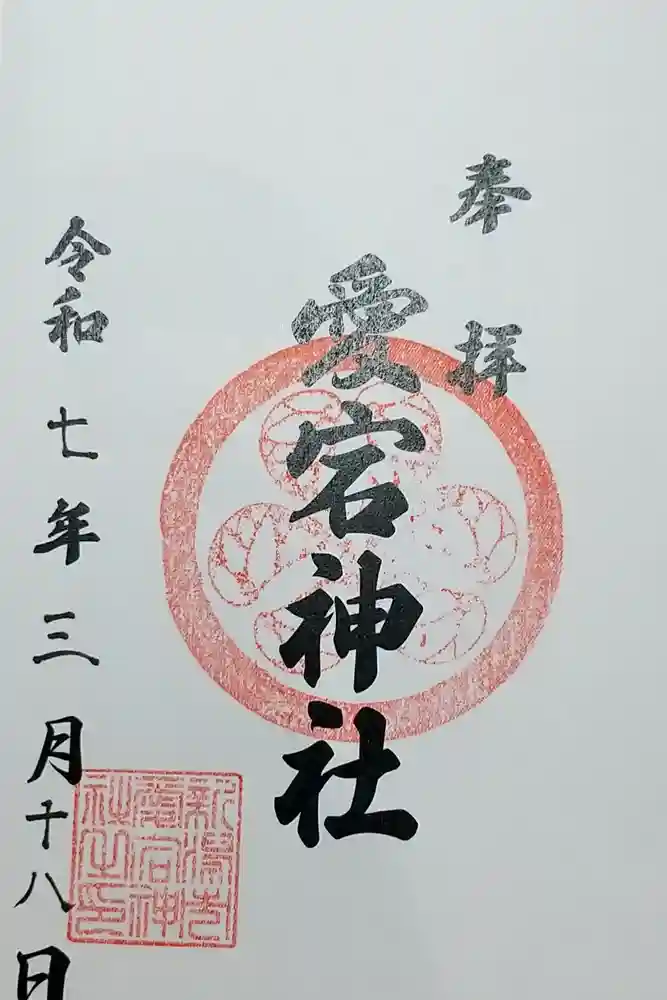 奉拝
愛宕神社
令和七年三月十八日
新潟古町愛宕神社之印